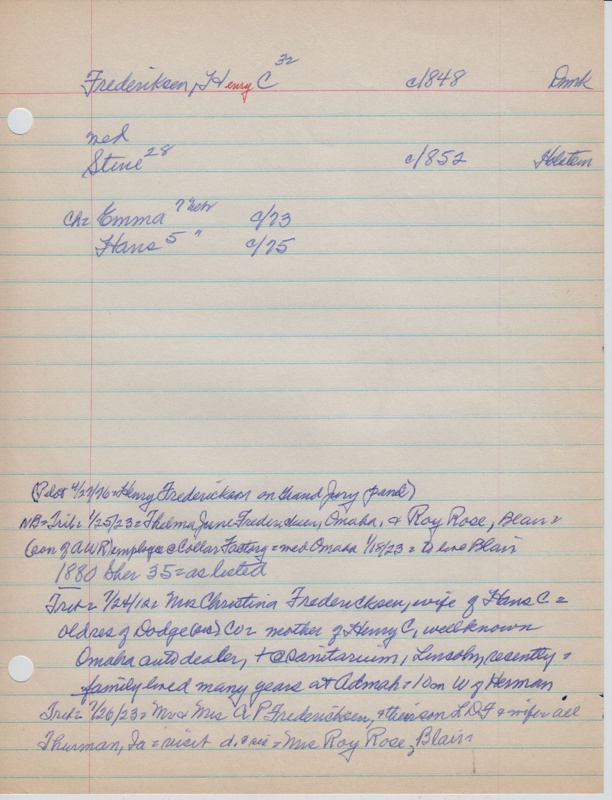 Frederiksen, Henry C 32 c/1848 Dmrk
med
Stine 28 c/1852 Holstein
Ch= Emma 7 Nebr c/73
Hans 5 " c/75
(Pilot 4/27/76=Henry Frederickson on Grand Jury panel)
NB=Trib= 1/25/23=Thelma June Fredericksen, Omaha, & Roy Rose, Blair=
(son of AWR) employee @ Collar Factory=med Omaha 1/18/23=to live Blair
1880 Sher 35=as listed
Trib= 7/24/12= Mrs Christina Fredericksen, wife of Hans C=
old res of Dodge Co= mother of Henry C, well known
Omaha auto dealer, + @ sanitarium, Lincoln, recently=
family lived many years at Admah=10m W of Herman
Trib= 7/26/23= Mr & Mrs A P Fredericksen, & their son L.D.F & wife all
Thurman, Ia=visit d. & sis=Mrs Roy Rose, Blair=